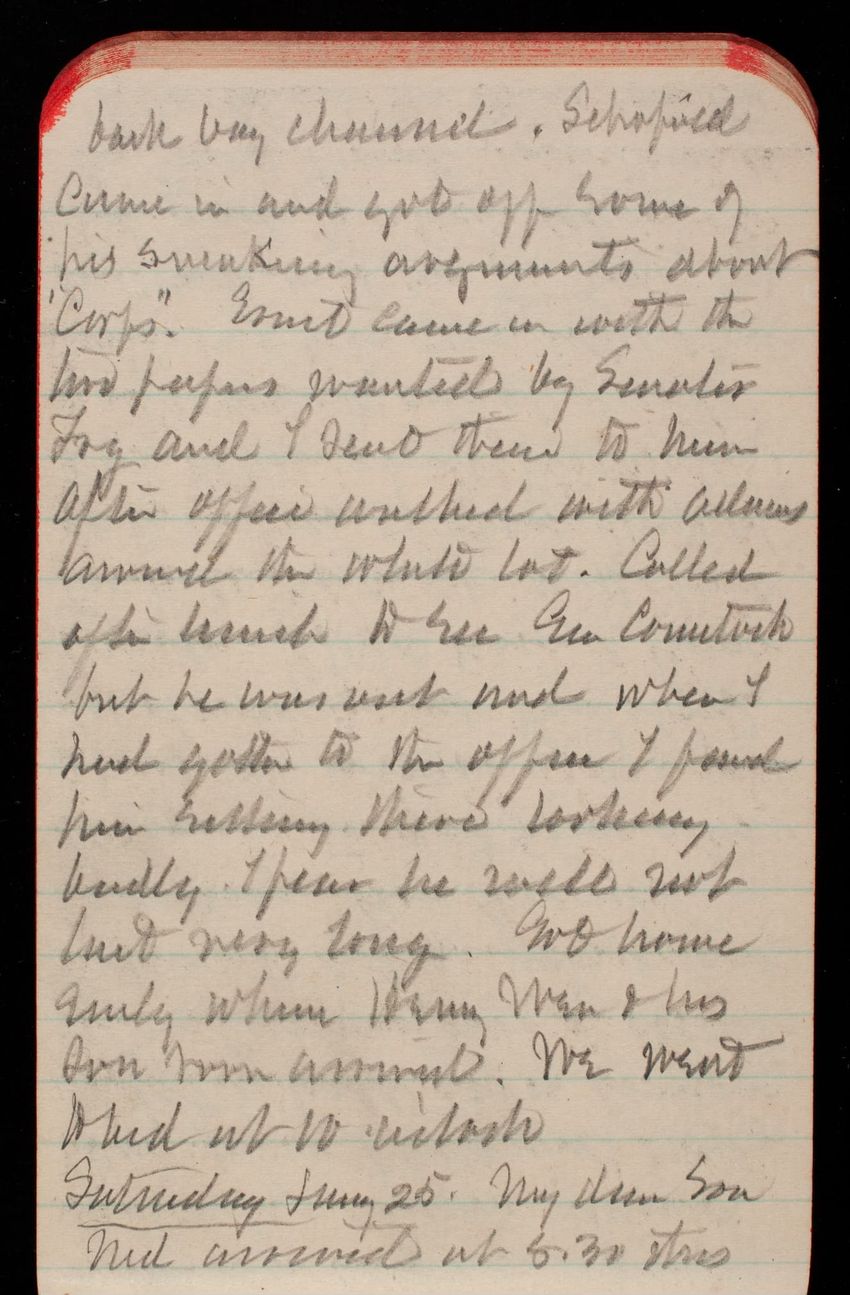 back bay channel. Schofield
came in and got off some of
his sneaking arguments about
"Corps". Ernst came in with the
two papers wanted by Senator
Fry and I sent them to him
After office walked with Adams
around the White lot. Called
after lunch to see Gen Comstock
but he was out and when I
had gotten to the office I found
him sitting there looking
badly. I fear he will not
last very long. Got home
early where Henry & his
Son soon arrived. We went
to bed at 10 o'clock
Saturday Jany 25. My dear Son
Ned arrived at 5.30 this